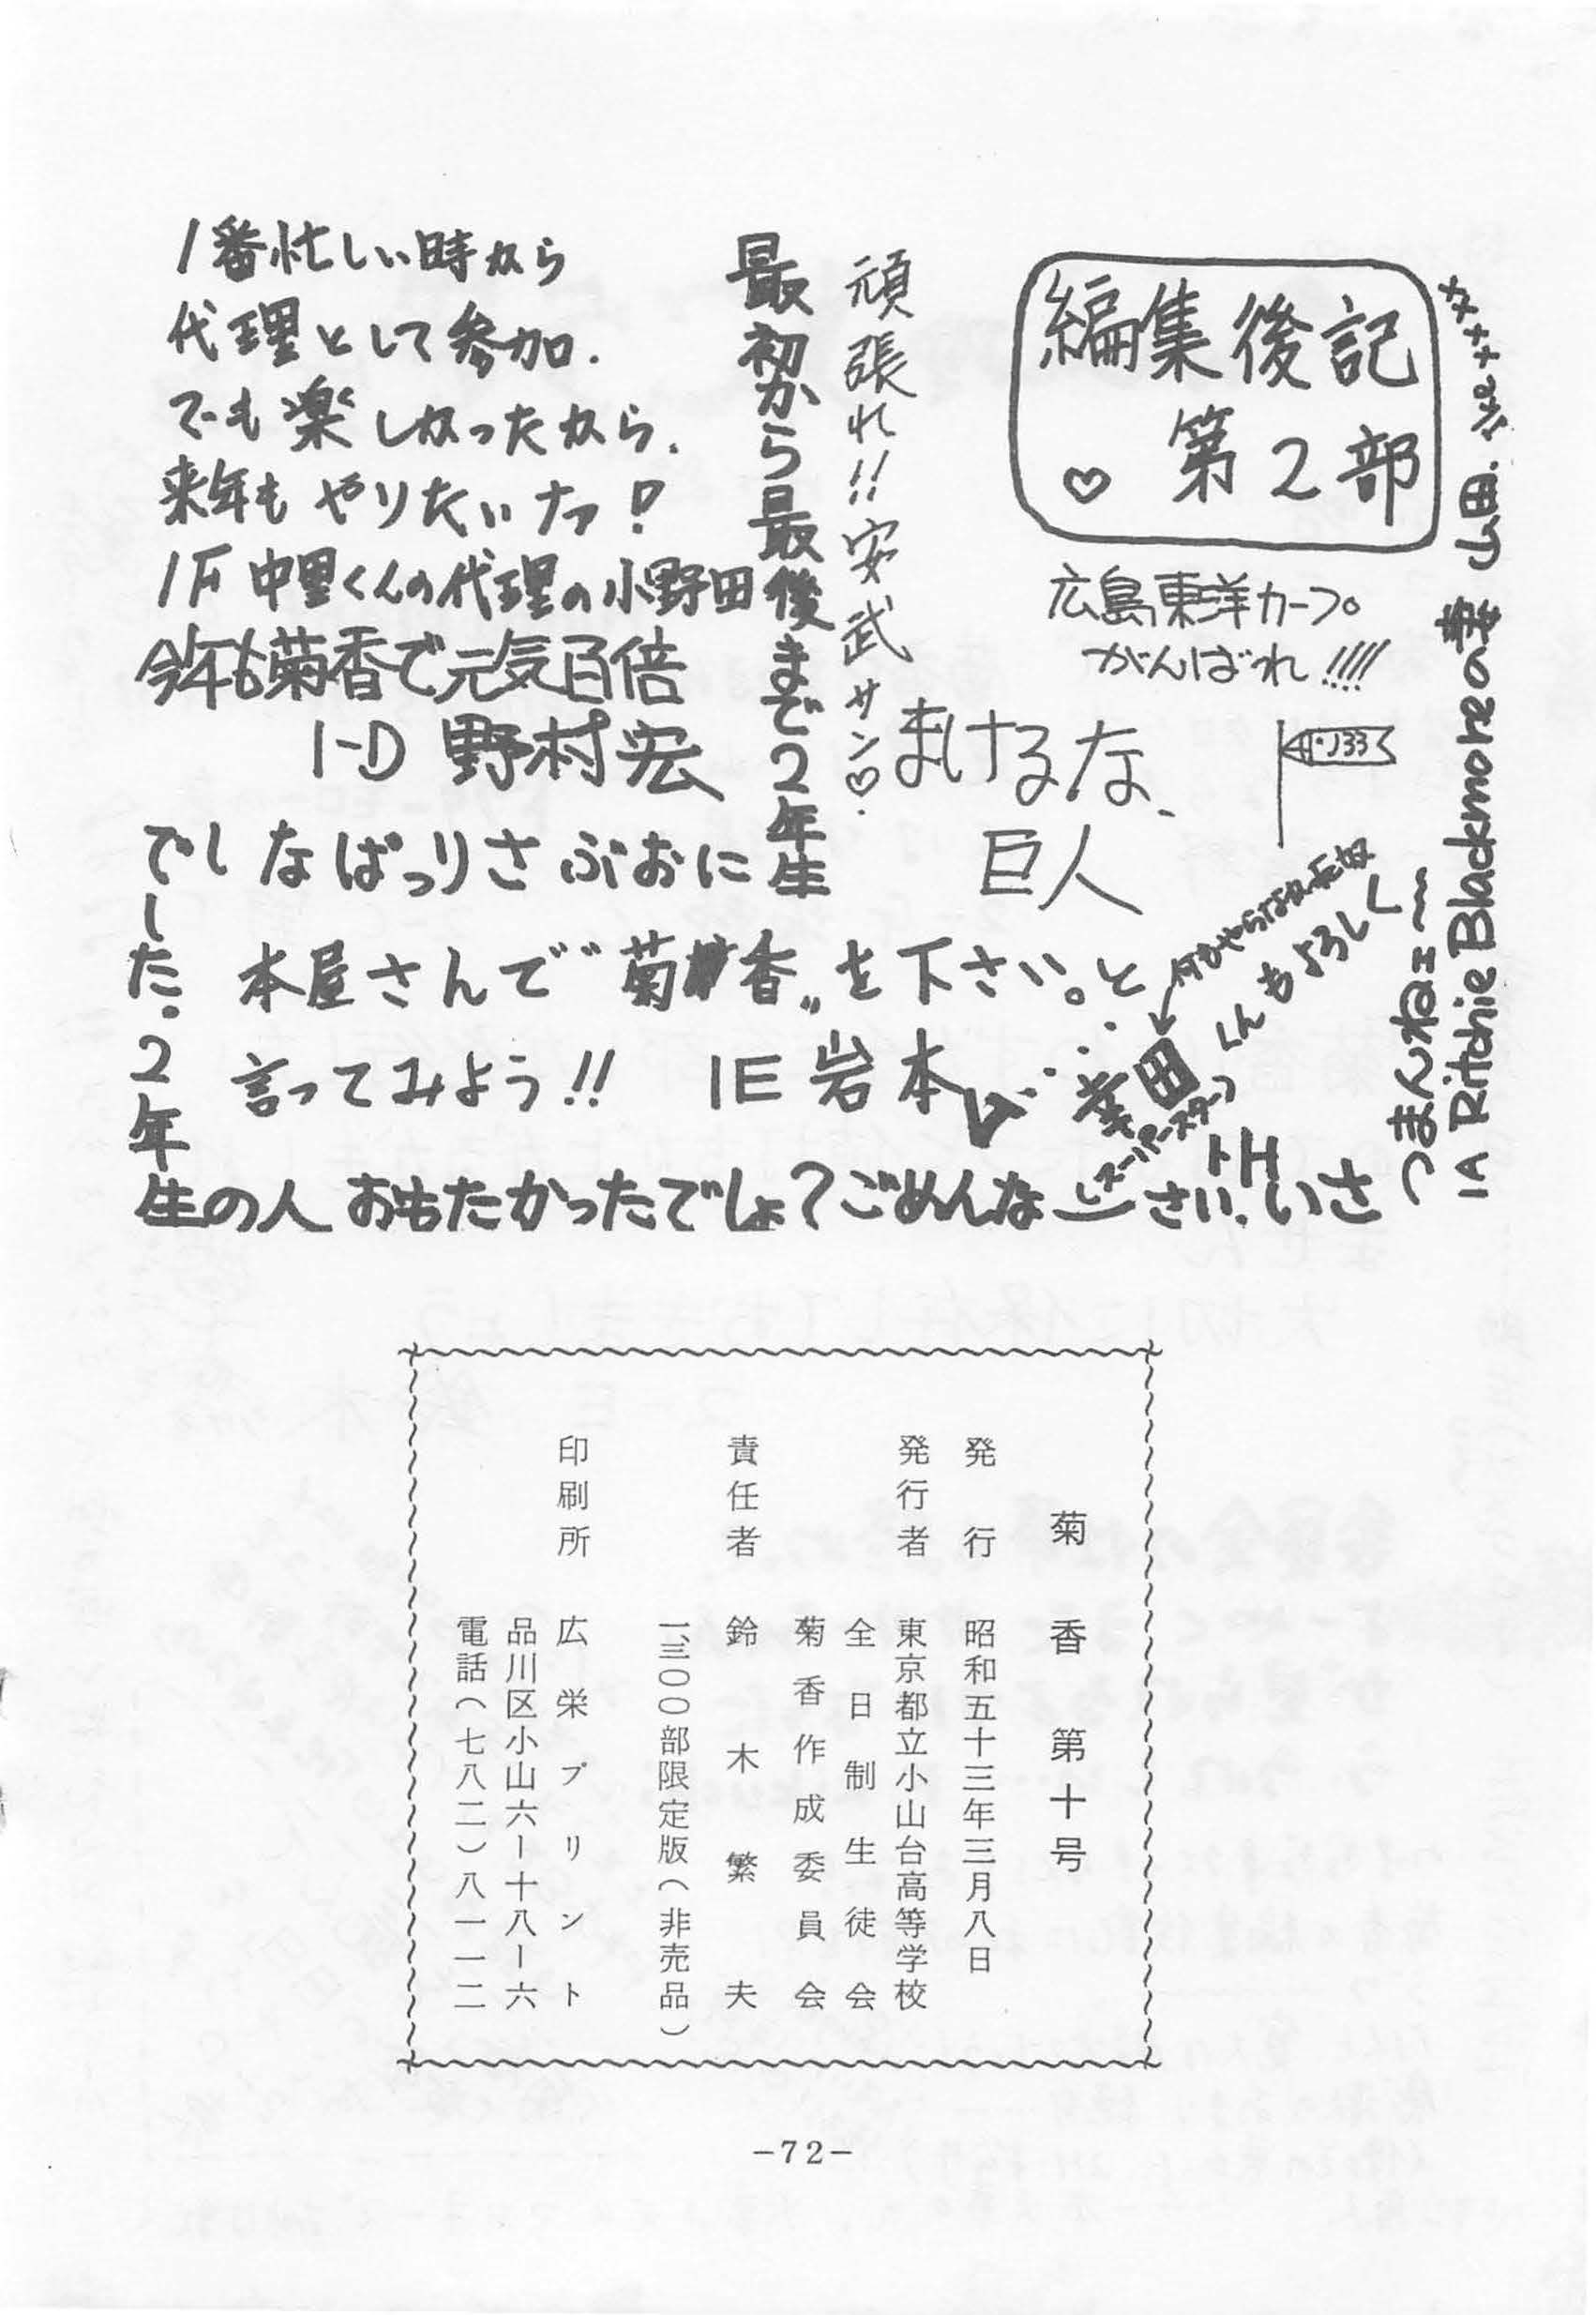 編集後記
第2部
広島東洋カープ。
がんばれ!!!!
まけるな、
巨人
頑張れ!!安武サン♡.
1番忙しい時から
代理として参加.
でも楽しかったから.
来年もやりたいナァ!
1F 中里くんの代理の小野田
今年も菊香で元気百倍
1-D 野村宏
最初から最後まで2年生
におぶさりっぱなし
でした。2年
生の人 おもたかったでしょ?ごめんなさい.
本屋さんで"菊香"を下さい。と
言ってみよう!! 1E 岩本
くんもよろしく
スーパースター
つまんねェ〜
1A Ritchie Blackmoreの妻 山田.
菊香 第十号
発行 昭和五十三年三月八日
発行者 東京都立小山台高等学校
全日制生徒会
菊香作成委員会
責任者 鈴木繁夫
一、三〇〇部限定版(非売品)
印刷所 広栄プリント
品川区小山六ー十八ー六
電話(七八二)八一一二
-72-